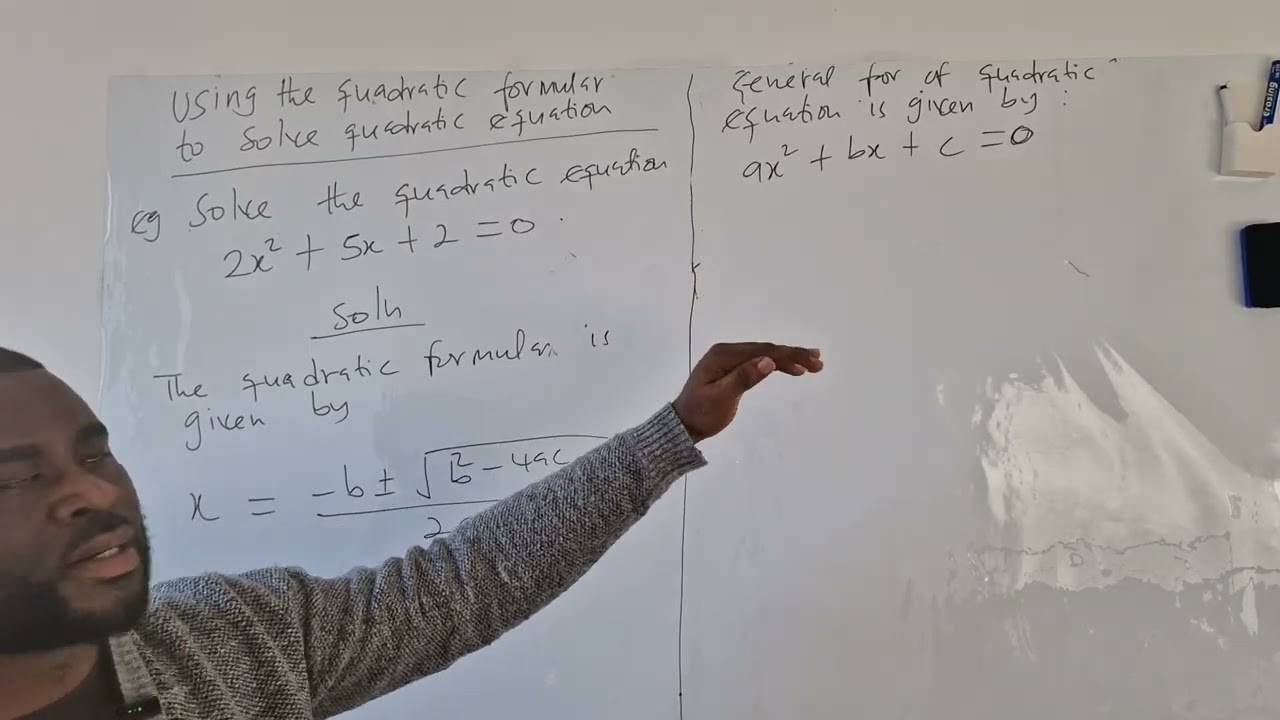 Using the quadratic formular
to solve quadratic equation
eg Solve the quadratic equation
2x² + 5x + 2 = 0.
Soln
The quadratic formular is
given by
x = -b ± √b² - 4ac
2
General for of quadratic
equation is given by :
ax² + bx + c = 0
Erasing